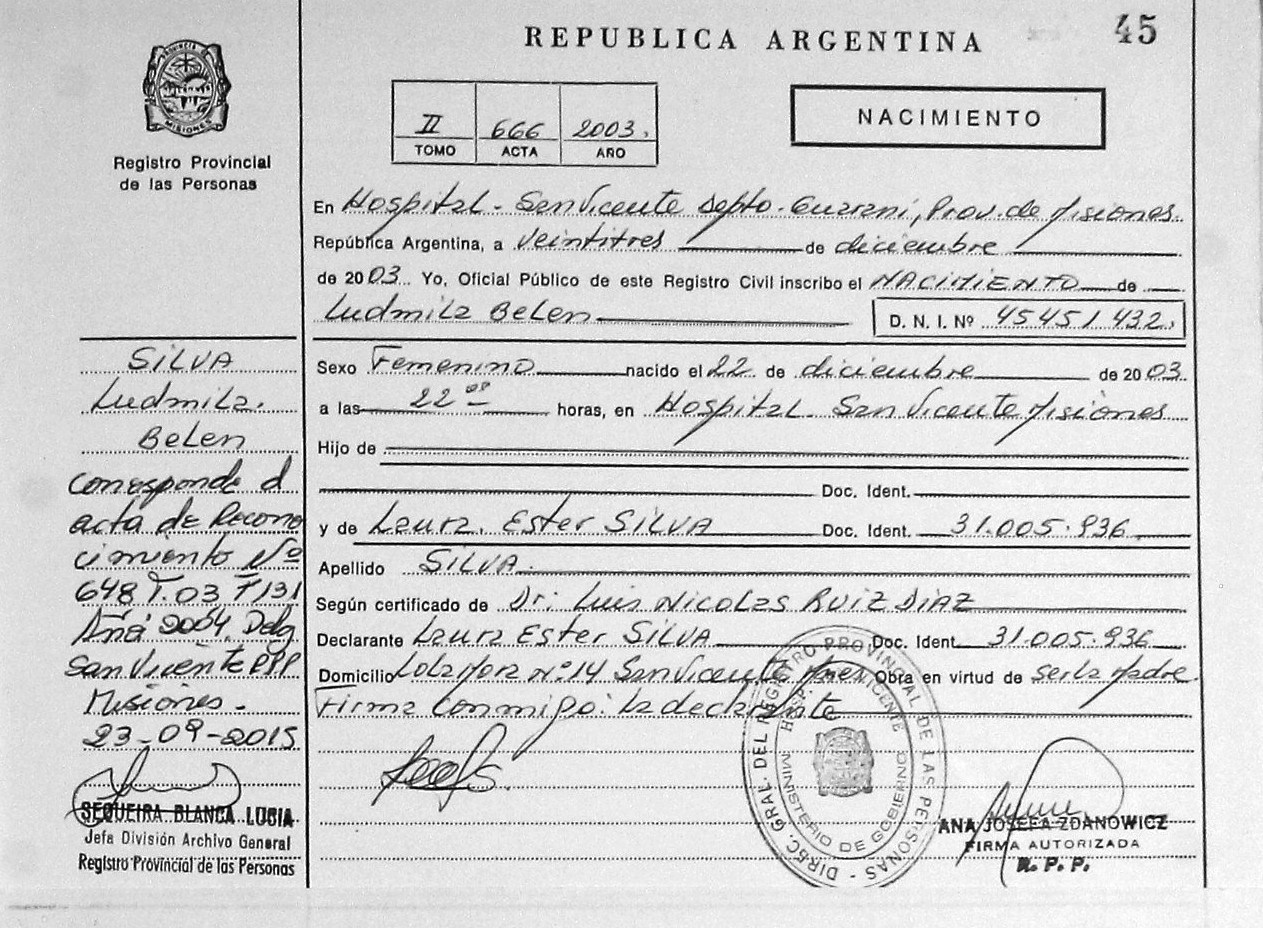 45
REPUBLICA ARGENTINA
PROVINCIA D
MISIONES
Registro Provincial
de las Personas
II 666 2003.
TOMO ACTA AÑO
NACIMIENTO
En Hospital - San Vicente Depto - Guarani, Prov. de Misiones
República Argentina, a veintitres de diciembre
de 2003 Yo, Oficial Público de este Registro Civil inscribo el NACIMIENTO de
Ludmila Belen D. N. I. Nº 45451432.
Sexo Femenino nacido el 22 de diciembre de 2003
a las 22 horas, en Hospital San Vicente Misiones
Hijo de
Doc. Ident.
y de Laura Ester SILVA Doc. Ident. 31.005.936
Apellido SILVA.
Según certificado de Dr. Luis Nicolas Ruiz Diaz
Declarante Laura Ester SILVA Doc. Ident. 31.005.936
Domicilio Lote nº 14 San Vicente Obra en virtud de ser la Madre
Firma conmigo: la declarante
SILVA
Ludmila.
Belen
corresponde a
acta de Recono
cimiento Nº
648 T.03 F131
Año 2004 Delg
San Vicente RPP
Misiones -
23-09-2015
SEQUEIRA BLANCA LUCIA
Jefa División Archivo General
Registro Provincial de las Personas
DIREC. GRAL. DEL REGISTRO PROVINCIAL DE LAS PERSONAS
HOSP. VICENTE
MINISTERIO DE GOBIERNO
ANA JOSEFA ZDANOWICZ
FIRMA AUTORIZADA
R. P. P.